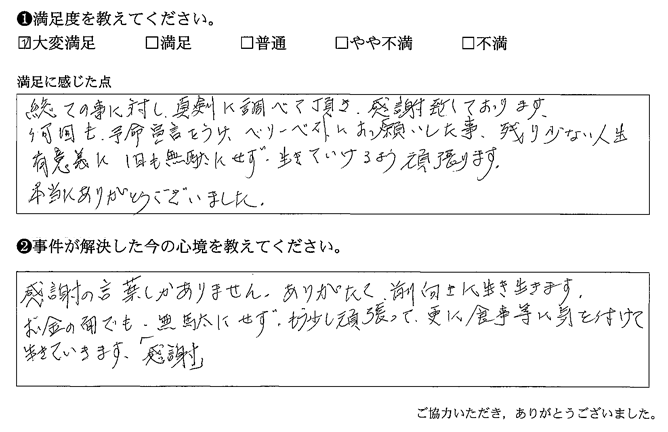 ❶満足度を教えてください。
☑大変満足 □満足 □普通 □やや不満 □不満
満足に感じた点
総ての事に対し、真剣に調べて頂き、感謝致しております、
何回も、予命宣言をうけ、ベリーベストにお願いした事、残り少ない人生
有意義に1日も無駄にせず、生きていけるよう頑張ります。
本当にありがとうございました。
❷事件が解決した今の心境を教えてください。
感謝の言葉しかありません。ありがたく、前向きに生き生きます。
お金の面でも、無駄にせず、もう少し頑張って、更に食事等に気を付けて
生きていきます、「感謝」
ご協力いただき，ありがとうございました。